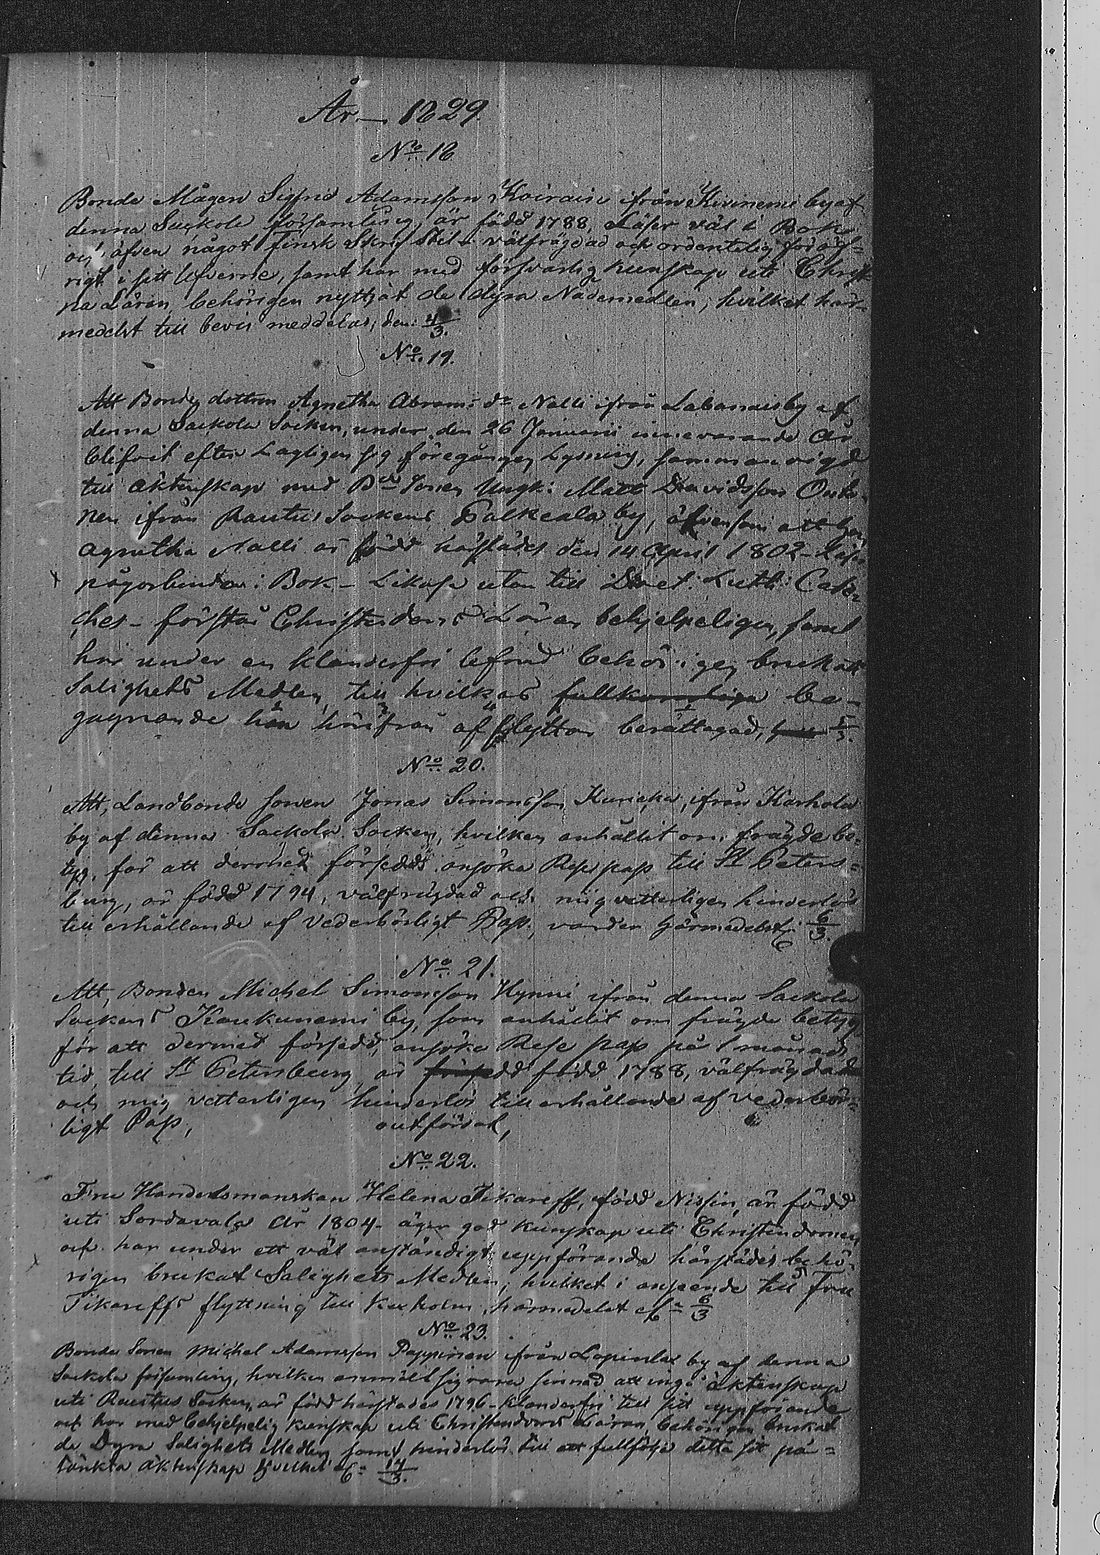 År — 1829.
No 18
Bonde Mågen Sigfrid Adamsson Koirain ifrån Kiviniemi by af
denna Sackola församling är född 1788, Läser väl i Bok
och äfven något finsk Skrif Stil – välfrägdad och ordentelig
rigt i sitt samt har med försvarlig kunskap uti Christ
na Läran behörigen nyttjat de dyra Nådemedlen; hvilket här-
medelst till bevis meddelas; den 4/3.
No 19.
Att Bonde dottren Agnetha Abrams dr Nalli ifrån Labanais by af
denna Sackola Socken, under den 26 Januarii innevarande År
blifvit efter Lagligen föregången Lysning, sammanvigd
till äktenskap med Bde Sonen Ungk: Matts Davidsson Onko-
nen ifrån Rautus Sockens Palkeala by, äfvensom att
Agnetha Nalli är född härstädes den 14 April 1802 –
i Bok – Likaså utan till Luth: Cate-
ches – förstår Christendoms Läran behjelpeligen, samt
har under en klanderfri lefnad behörigen brukat
Salighets Medlen, till hvilkas fullkomliga be-
gagnande hon härifrån afflyttar berättigad, 5/3.
No 20.
Att, Landbonde Sonen Jonas Simonsson Kuneka, ifrån Karhola
by af denna Sackola Socken, hvilken anhållit om frägdebe-
tyg, för att dermed försedd ansöka Resepass till St Peters-
burg, är född 1794, välfrägdad och mig vetterligen hinderlös
till erhållande af Vederbörligt Pass, varder härmedelst 6/3.
No 21.
Att, Bonden Michel Simonsson Hynni, ifrån denna Sackola
Sockens Kaukuniemi by, som anhållit om frägde betyg
för att dermed försedd, ansöka Rese pass på 1 månad
tid, till St Petersbeurg, är född 1788, välfrägdad
och mig vetterligen hinderlös till erhållande af vederbör-
ligt Pass,
No 22.
Fru Handelsmanskan Helena Tikareff, född Nissin, är född
uti Sordavala År 1804 – äger god kunskap uti Christendomen
och har under ett väl anständigt uppförande härstädes behö-
rigen brukat Salighets Medlen; hvilket i anseende till Fru
Tikareffs flyttning till Kexholm, härmedelst 6/3
No 23.
Bonde Sonen Michel Adamsson Pappinen ifrån Lapinlax by af denna
Sackola församling, hvilken anmält sig vara sinnad att ingå äktenskap
uti Rautus Socken, är född härstädes 1796 – klanderfri till sitt uppförande
och har med behjelpelig kunskap uti Christendoms Läran behörigen brukat
de Dyra Salighets Medlen samt hinderlös till att fullfölja detta sitt på-
tänkta äktenskap hvilket 14/3.